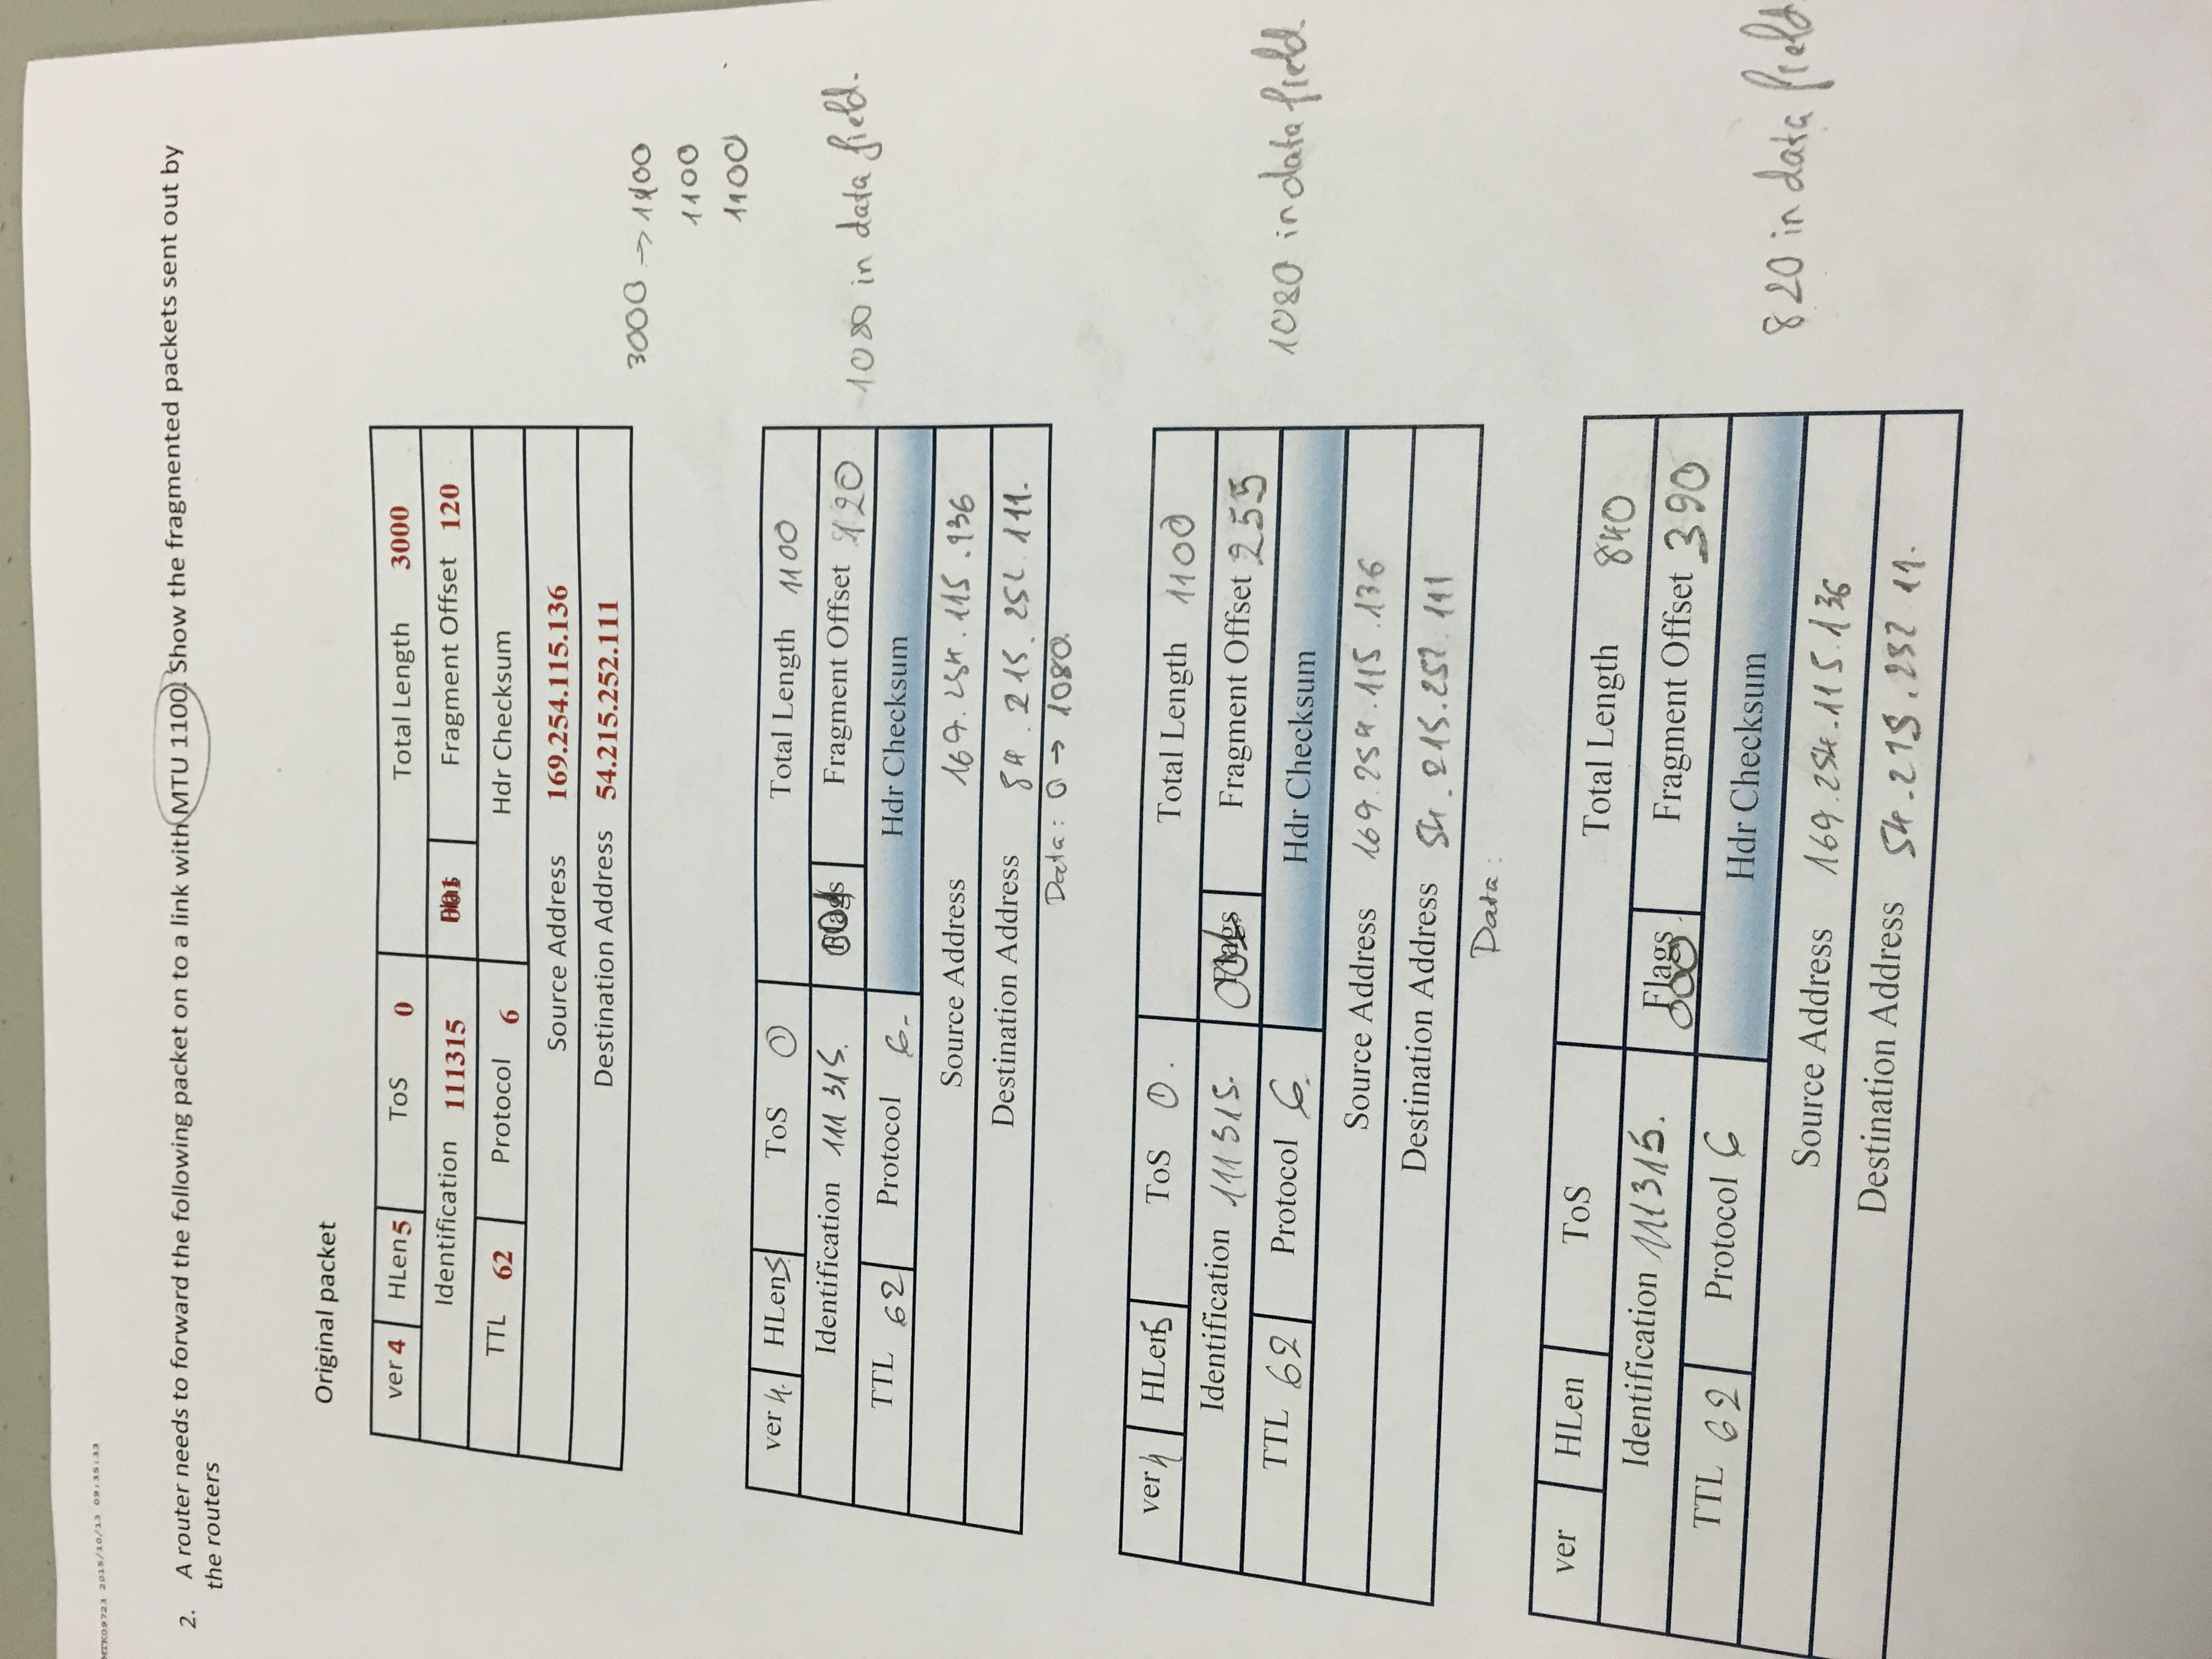 MTK09723 2015/10/13 09:35:33
2. A router needs to forward the following packet on to a link with MTU 1100. Show the fragmented packets sent out by
the routers
Original packet
ver 4 HLen 5 ToS 0 Total Length 3000
Identification 111315 001 Fragment Offset 120
TTL 62 Protocol 6 Hdr Checksum
Source Address 169.254.115.136
Destination Address 54.215.252.111
3000 → 1100
1100
1100
ver 4. HLen 5. ToS 0 Total Length 1100
Identification 111 315. Flags 001 Fragment Offset 120
1080 in data field.
TTL 62 Protocol 6. Hdr Checksum
Source Address 169.254.115.136
Destination Address 54.215.252.111.
Data: 0 → 1080.
ver 4 HLen 5 ToS 0. Total Length 1100
Identification 111315. Flags 001 Fragment Offset 255
1080 in data field.
TTL 62 Protocol 6. Hdr Checksum
Source Address 169.254.115.136
Destination Address 54.215.252.111
Data:
ver HLen ToS Total Length 840
Identification 111315. Flags 000. Fragment Offset 390
TTL 62 Protocol 6 Hdr Checksum
820 in data field
Source Address 169.254.115.136
Destination Address 54.215.252 11.